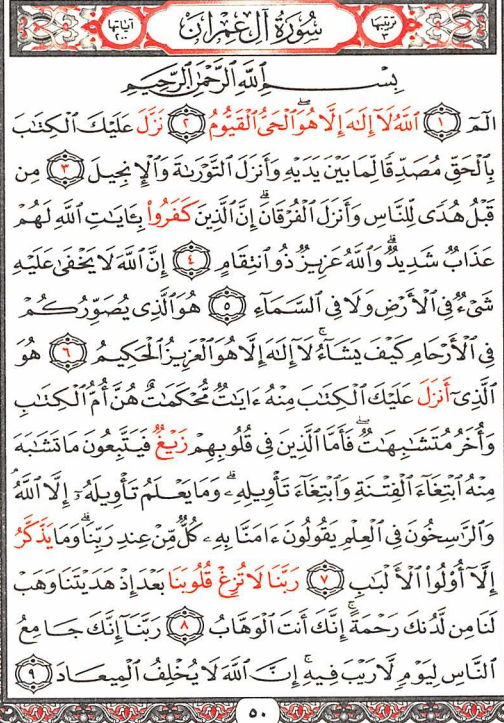 ترتيبها ٣ سُورَةُ آلِ عِمْرَان آياتها ٢٠٠
بِسْمِ ٱللَّهِ ٱلرَّحْمَٰنِ ٱلرَّحِيمِ
الٓمٓ ١ ٱللَّهُ لَآ إِلَٰهَ إِلَّا هُوَ ٱلْحَىُّ ٱلْقَيُّومُ ٢ نَزَّلَ عَلَيْكَ ٱلْكِتَٰبَ
بِٱلْحَقِّ مُصَدِّقًا لِّمَا بَيْنَ يَدَيْهِ وَأَنزَلَ ٱلتَّوْرَىٰةَ وَٱلْإِنجِيلَ ٣ مِن
قَبْلُ هُدًى لِّلنَّاسِ وَأَنزَلَ ٱلْفُرْقَانَ ۗ إِنَّ ٱلَّذِينَ كَفَرُوا۟ بِـَٔايَٰتِ ٱللَّهِ لَهُمْ
عَذَابٌ شَدِيدٌ ۗ وَٱللَّهُ عَزِيزٌ ذُو ٱنتِقَامٍ ٤ إِنَّ ٱللَّهَ لَا يَخْفَىٰ عَلَيْهِ
شَىْءٌ فِى ٱلْأَرْضِ وَلَا فِى ٱلسَّمَآءِ ٥ هُوَ ٱلَّذِى يُصَوِّرُكُمْ
فِى ٱلْأَرْحَامِ كَيْفَ يَشَآءُ ۚ لَآ إِلَٰهَ إِلَّا هُوَ ٱلْعَزِيزُ ٱلْحَكِيمُ ٦ هُوَ
ٱلَّذِىٓ أَنزَلَ عَلَيْكَ ٱلْكِتَٰبَ مِنْهُ ءَايَٰتٌ مُّحْكَمَٰتٌ هُنَّ أُمُّ ٱلْكِتَٰبِ
وَأُخَرُ مُتَشَٰبِهَٰتٌ ۖ فَأَمَّا ٱلَّذِينَ فِى قُلُوبِهِمْ زَيْغٌ فَيَتَّبِعُونَ مَا تَشَٰبَهَ
مِنْهُ ٱبْتِغَآءَ ٱلْفِتْنَةِ وَٱبْتِغَآءَ تَأْوِيلِهِۦ ۗ وَمَا يَعْلَمُ تَأْوِيلَهُۥٓ إِلَّا ٱللَّهُ ۗ
وَٱلرَّٰسِخُونَ فِى ٱلْعِلْمِ يَقُولُونَ ءَامَنَّا بِهِۦ كُلٌّ مِّنْ عِندِ رَبِّنَا ۗ وَمَا يَذَّكَّرُ
إِلَّآ أُو۟لُوا۟ ٱلْأَلْبَٰبِ ٧ رَبَّنَا لَا تُزِغْ قُلُوبَنَا بَعْدَ إِذْ هَدَيْتَنَا وَهَبْ
لَنَا مِن لَّدُنكَ رَحْمَةً ۚ إِنَّكَ أَنتَ ٱلْوَهَّابُ ٨ رَبَّنَآ إِنَّكَ جَامِعُ
ٱلنَّاسِ لِيَوْمٍ لَّا رَيْبَ فِيهِ ۚ إِنَّ ٱللَّهَ لَا يُخْلِفُ ٱلْمِيعَادَ ٩
٥٠